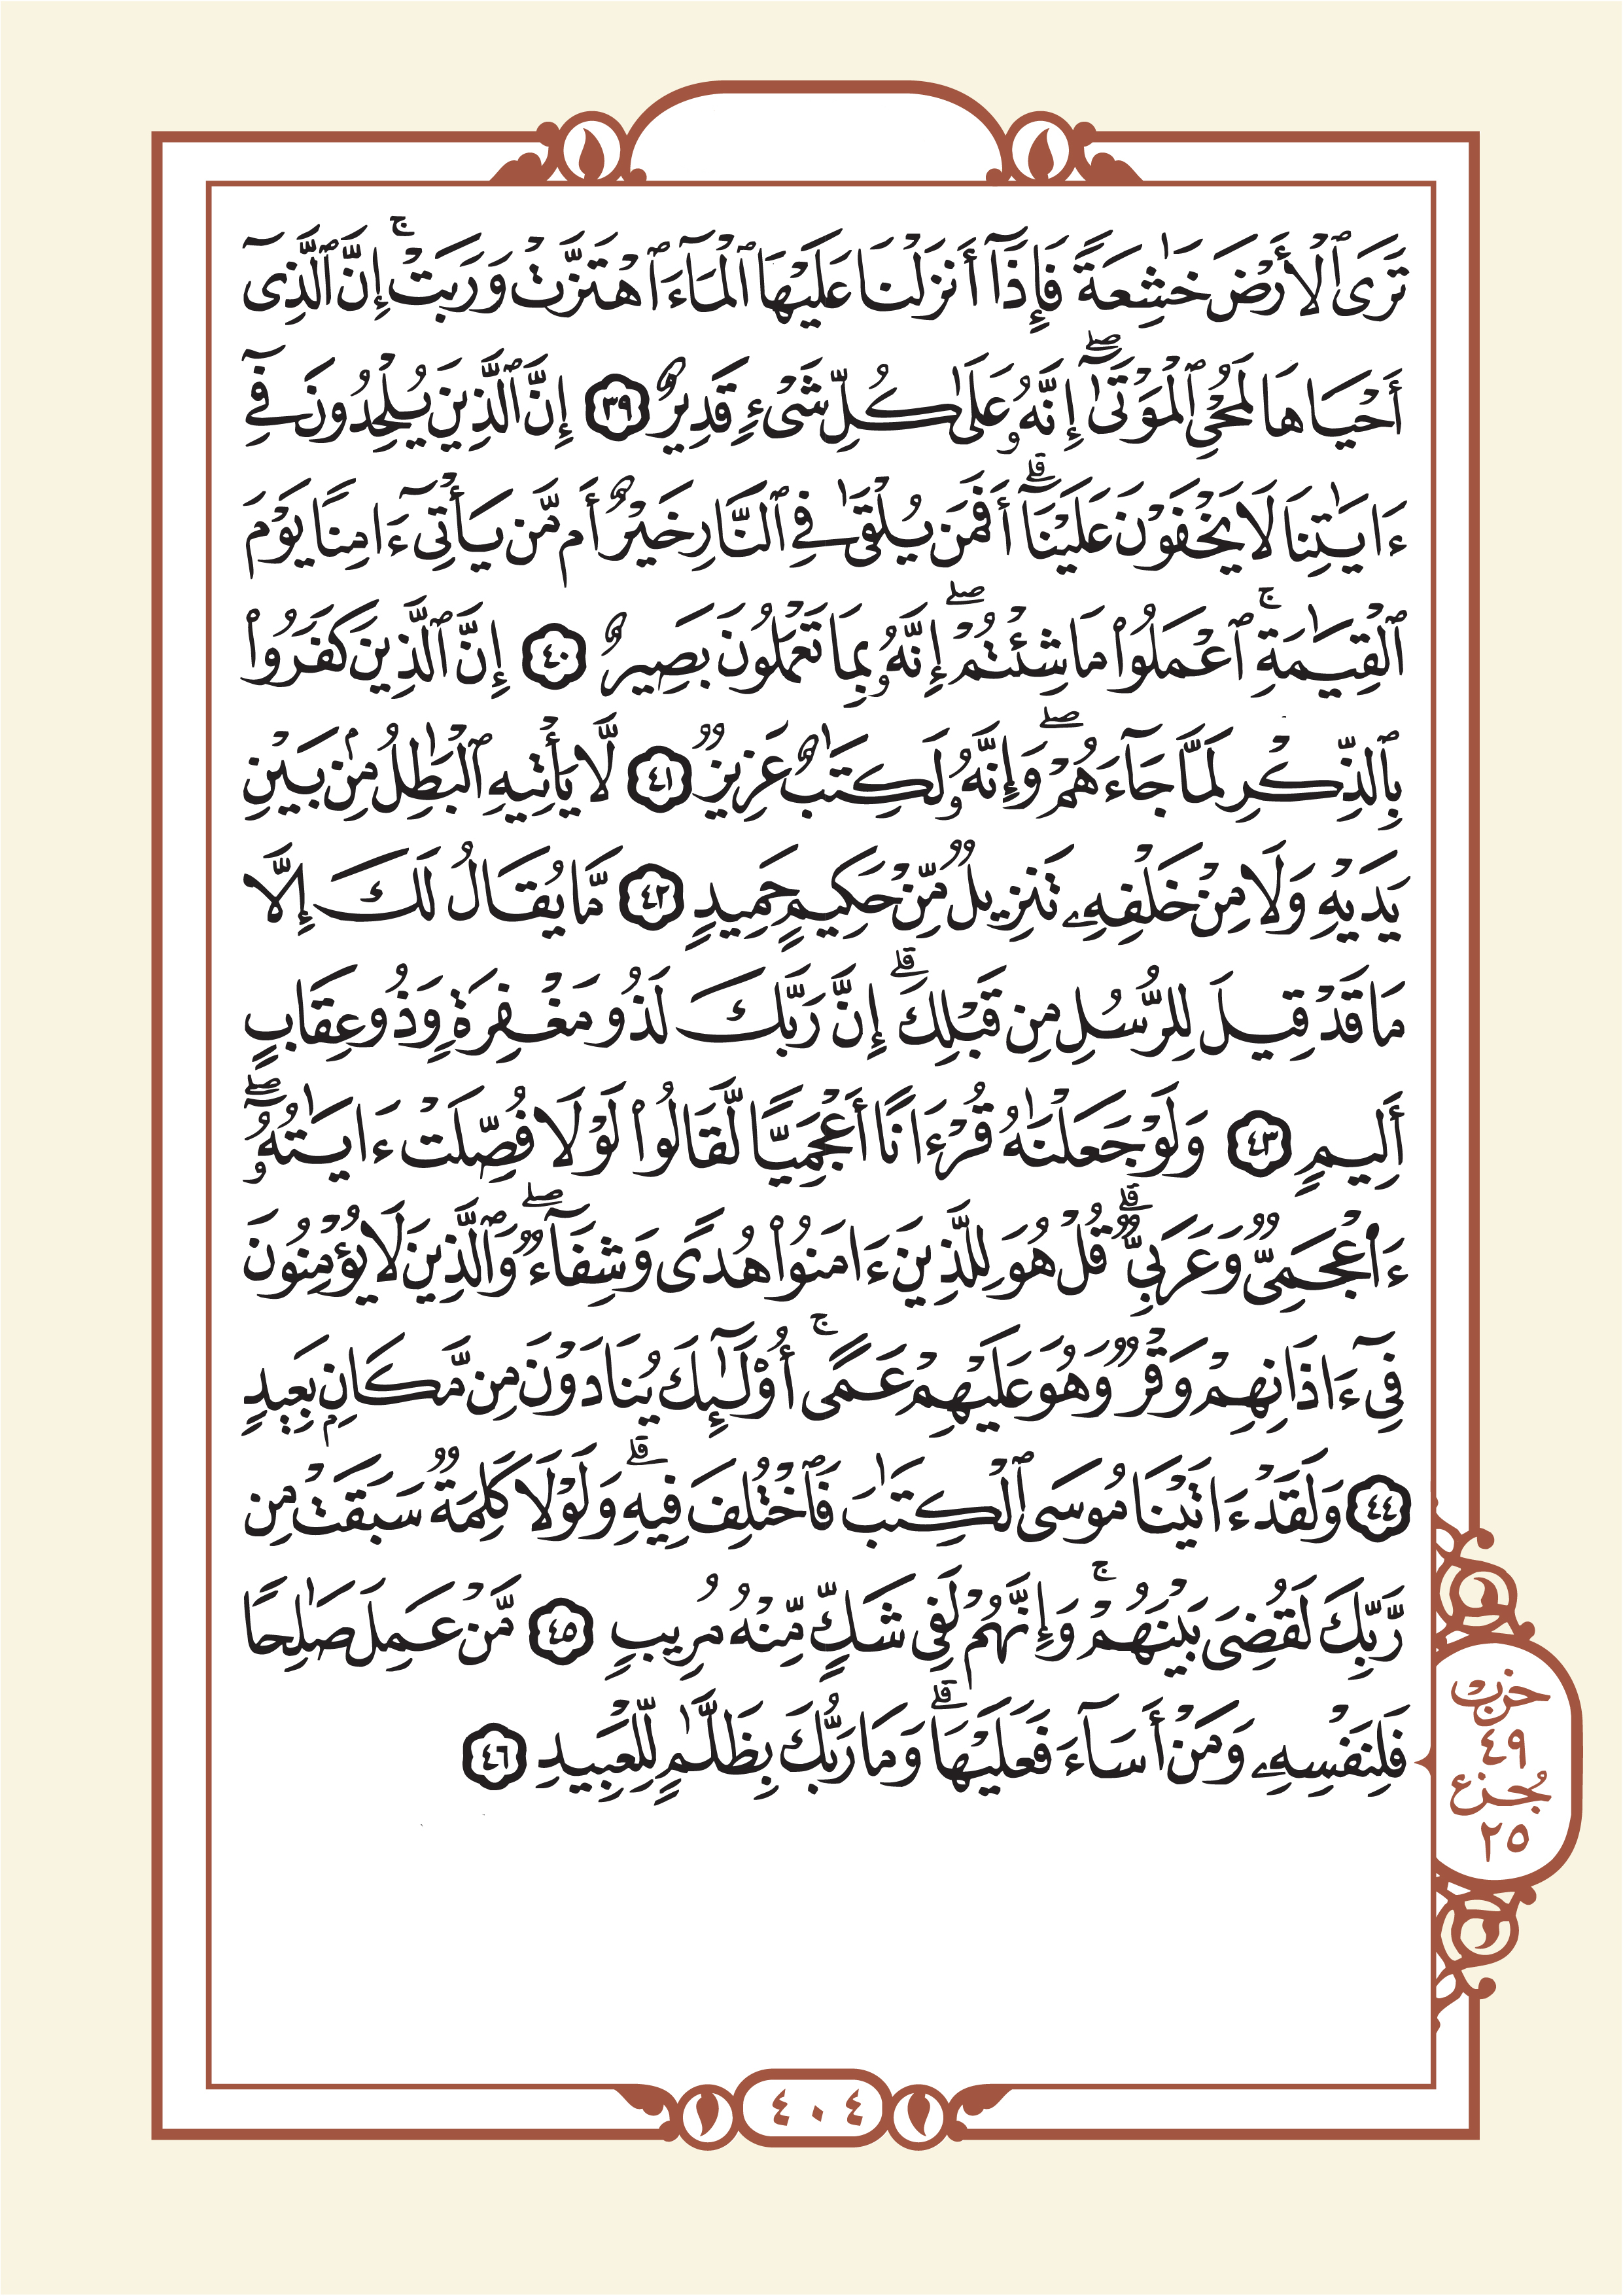 تَرَى ٱلْأَرْضَ خَٰشِعَةً فَإِذَآ أَنزَلْنَا عَلَيْهَا ٱلْمَآءَ ٱهْتَزَّتْ وَرَبَتْ ۚ إِنَّ ٱلَّذِىٓ
أَحْيَاهَا لَمُحْىِ ٱلْمَوْتَىٰٓ ۖ إِنَّهُۥ عَلَىٰ كُلِّ شَىْءٍ قَدِيرٌ ٣٩ إِنَّ ٱلَّذِينَ يُلْحِدُونَ فِىٓ
ءَايَٰتِنَا لَا يَخْفَوْنَ عَلَيْنَآ ۗ أَفَمَن يُلْقَىٰ فِى ٱلنَّارِ خَيْرٌ أَم مَّن يَأْتِىٓ ءَامِنًا يَوْمَ
ٱلْقِيَٰمَةِ ۚ ٱعْمَلُوا۟ مَا شِئْتُمْ ۖ إِنَّهُۥ بِمَا تَعْمَلُونَ بَصِيرٌ ٤٠ إِنَّ ٱلَّذِينَ كَفَرُوا۟
بِٱلذِّكْرِ لَمَّا جَآءَهُمْ ۖ وَإِنَّهُۥ لَكِتَٰبٌ عَزِيزٌ ٤١ لَّا يَأْتِيهِ ٱلْبَٰطِلُ مِنۢ بَيْنِ
يَدَيْهِ وَلَا مِنْ خَلْفِهِۦ تَنزِيلٌ مِّنْ حَكِيمٍ حَمِيدٍ ٤٢ مَّا يُقَالُ لَكَ إِلَّا
مَا قَدْ قِيلَ لِلرُّسُلِ مِن قَبْلِكَ ۗ إِنَّ رَبَّكَ لَذُو مَغْفِرَةٍ وَذُو عِقَابٍ
أَلِيمٍ ٤٣ وَلَوْ جَعَلْنَٰهُ قُرْءَانًا أَعْجَمِيًّا لَّقَالُوا۟ لَوْلَا فُصِّلَتْ ءَايَٰتُهُۥٓ ۖ
ءَا۬عْجَمِىٌّ وَعَرَبِىٌّ ۗ قُلْ هُوَ لِلَّذِينَ ءَامَنُوا۟ هُدًى وَشِفَآءٌ ۖ وَٱلَّذِينَ لَا يُؤْمِنُونَ
فِىٓ ءَاذَانِهِمْ وَقْرٌ وَهُوَ عَلَيْهِمْ عَمًى ۚ أُو۟لَٰٓئِكَ يُنَادَوْنَ مِن مَّكَانٍۭ بَعِيدٍ
٤٤ وَلَقَدْ ءَاتَيْنَا مُوسَى ٱلْكِتَٰبَ فَٱخْتُلِفَ فِيهِ ۗ وَلَوْلَا كَلِمَةٌ سَبَقَتْ مِن
رَّبِّكَ لَقُضِىَ بَيْنَهُمْ ۚ وَإِنَّهُمْ لَفِى شَكٍّ مِّنْهُ مُرِيبٍ ٤٥ مَّنْ عَمِلَ صَٰلِحًا
فَلِنَفْسِهِۦ وَمَنْ أَسَآءَ فَعَلَيْهَا ۗ وَمَا رَبُّكَ بِظَلَّٰمٍ لِّلْعَبِيدِ ٤٦
حزب
٤٩
جُزء
٢٥
٤٠٤